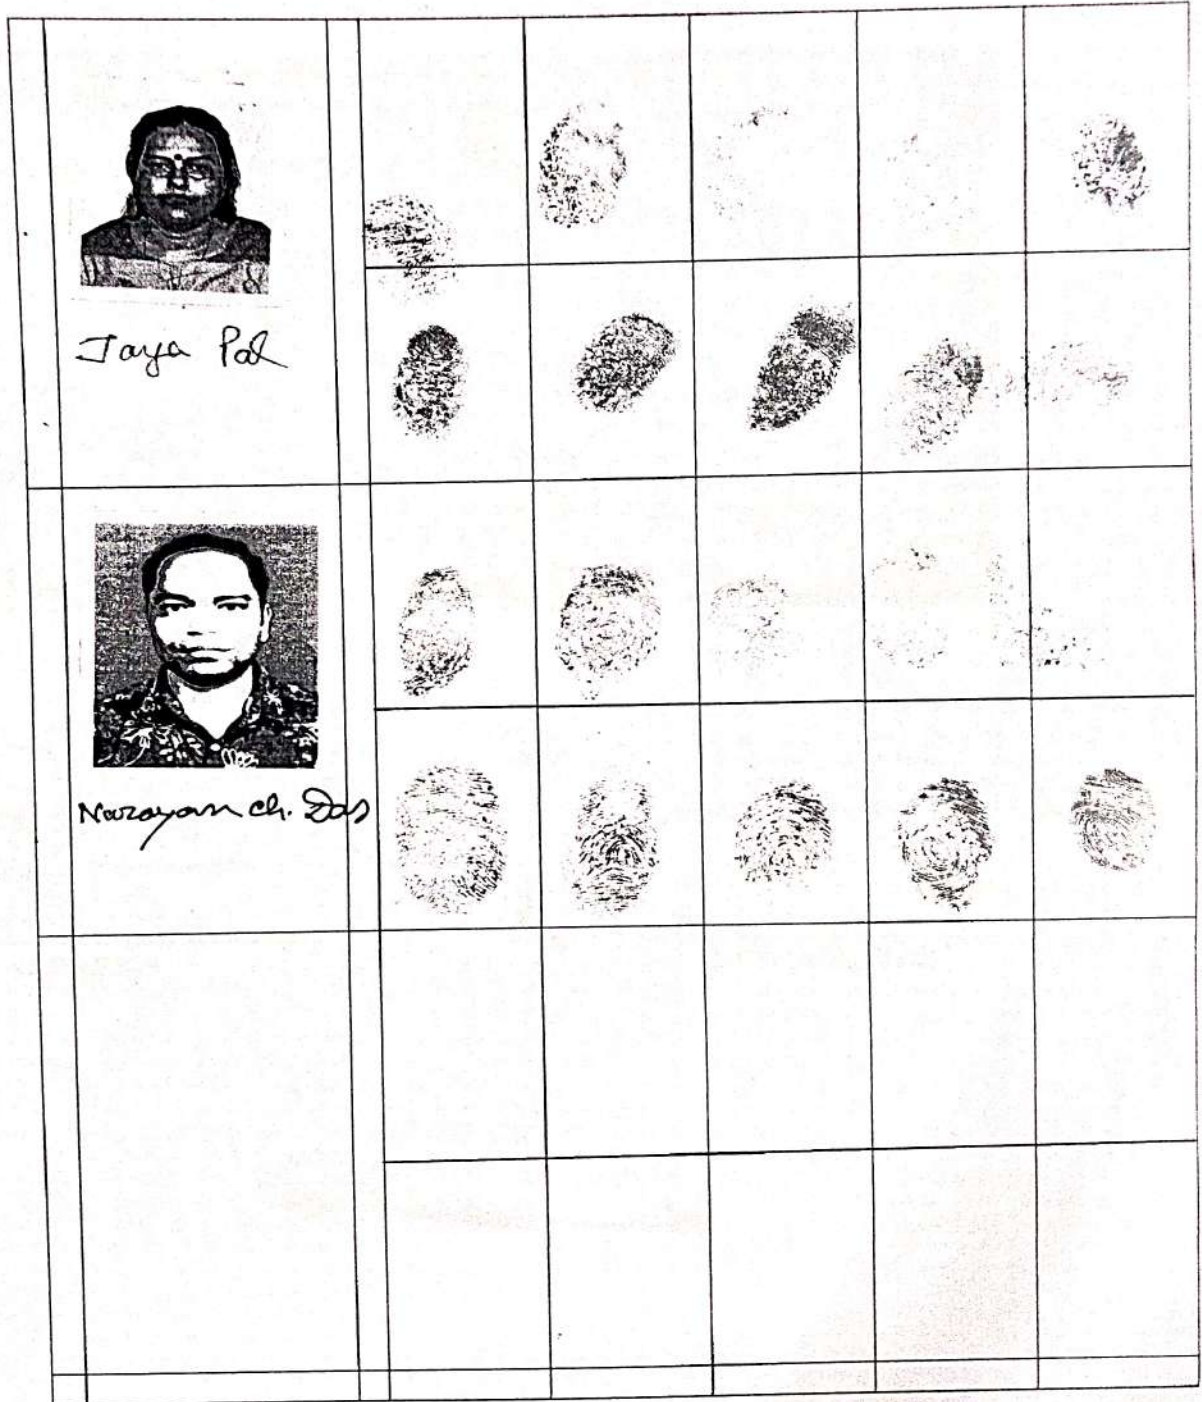 Jaya Pal
Narayan ch. Das